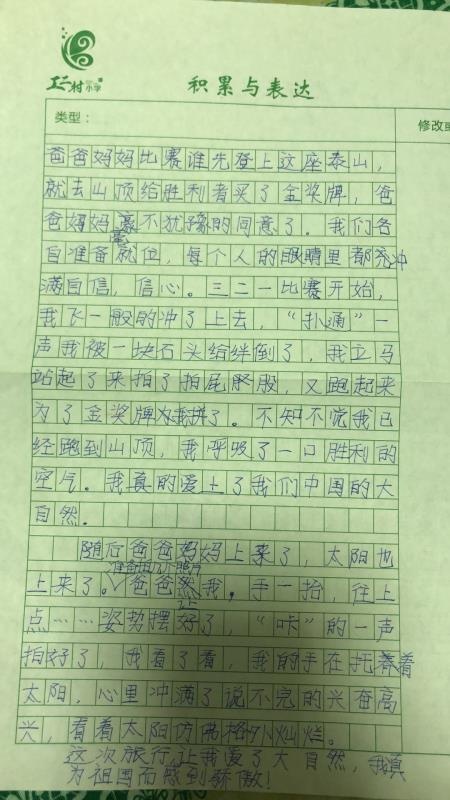 工二村小学
积累与表达
类型：
修改
爸爸妈妈比赛谁先登上这座泰山，
就去山顶给胜利者买了金奖牌，爸
爸妈妈毫不犹豫的同意了。我们各
自准备就位，每个人的眼睛里都充
满自信，信心。三二一比赛开始，
我飞一般的冲了上去，“扑通”一
声我被一块石头给绊倒了，我立马
站起了来拍了拍屁股，又跑起来
为了金奖牌为我拼了。不知不觉我已
经跑到山顶，我呼吸了一口胜利的
空气。我真的爱上了我们中国的大
自然。
随后爸爸妈妈上来了，太阳也
上来了。准备拍几个照片爸爸让我，手一抬，往上
点……姿势摆好了，“咔”的一声
拍好了，我看了看，我的手在托着
太阳，心里冲满了说不完的兴奋高
兴，看着太阳仿佛格外灿烂。
这次旅行，让我爱了大自然，我真
为祖国而感到骄傲！